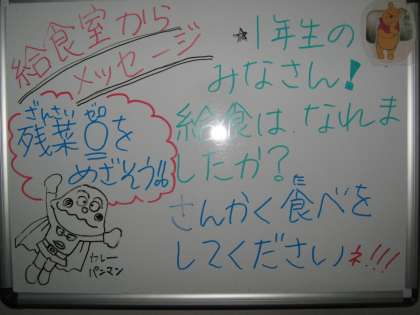 給食室から
メッセージ
★1年生の
みなさん!
給食は、なれま
したか?
さんかく食べを
た
してくださいネ!!!
ざんさい ゼロ
残菜0を
めざそう!!
カレー
パンマン